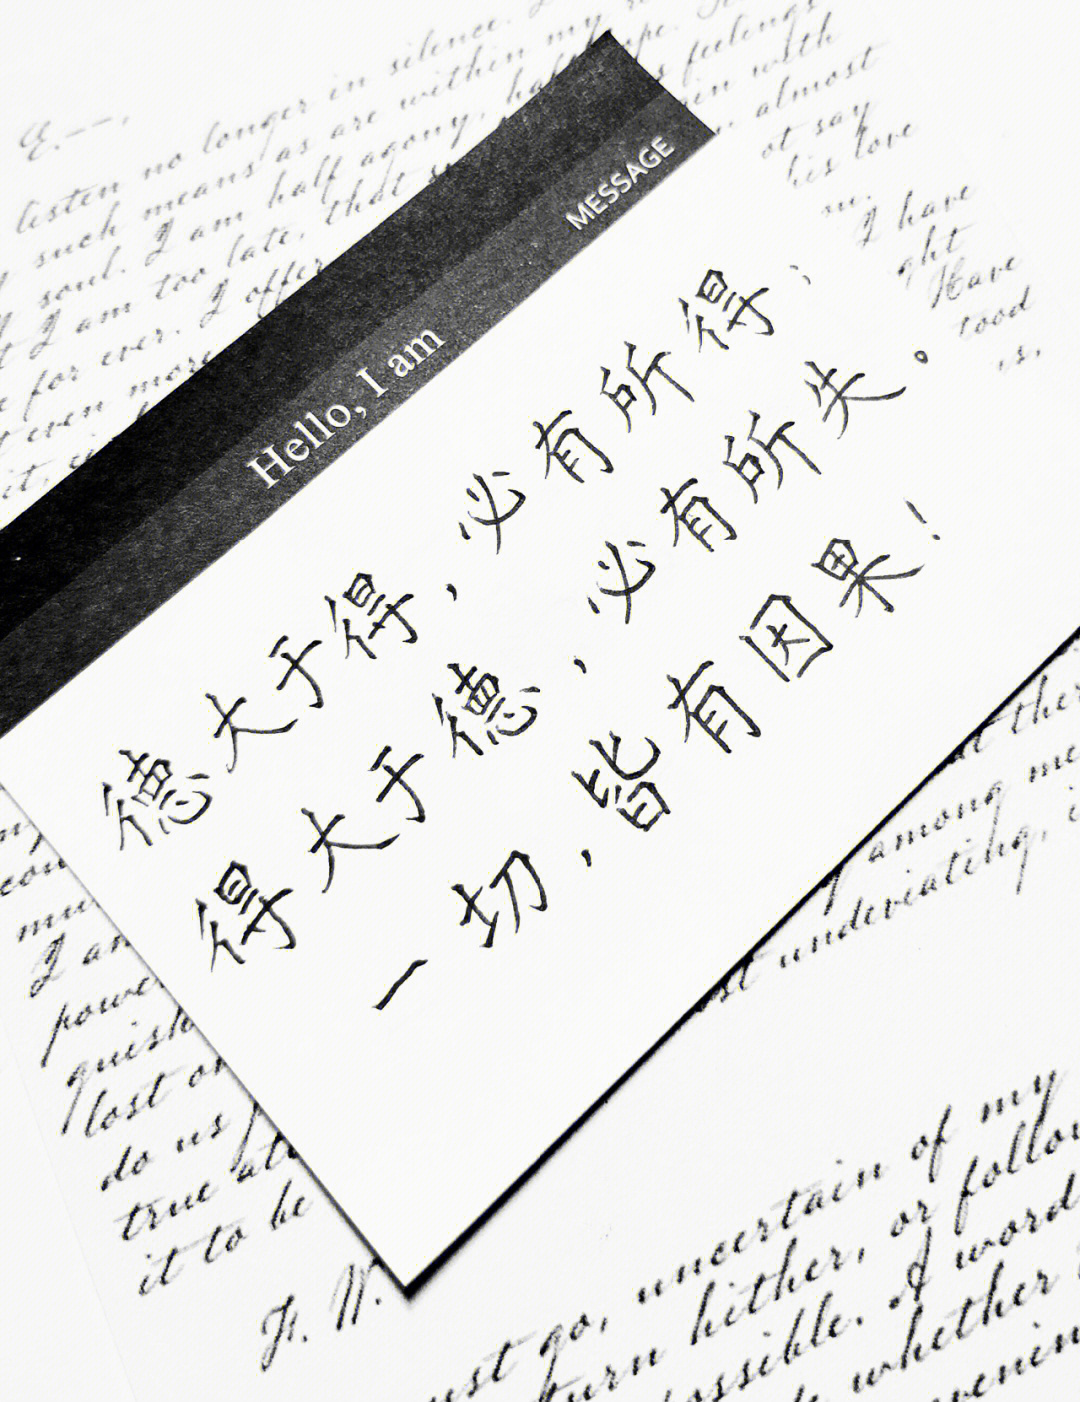 E.--,
listen no longer in silence.
such means as are within my
soul. I am half agony, half
I am too late, that
for ever. I offer
even more
it,
feelings
with
almost
ot say
his love
I have
ght
Have
tood
us,
MESSAGE
Hello, I am
德大于得，必有所得；
得大于德，必有所失。
一切，皆有因果！
I am
power
lost on
do us
true
it to be
F. W.
among me
undeviating, i
ust go, uncertain of my
turn hither, or follow
possible. A word
whether